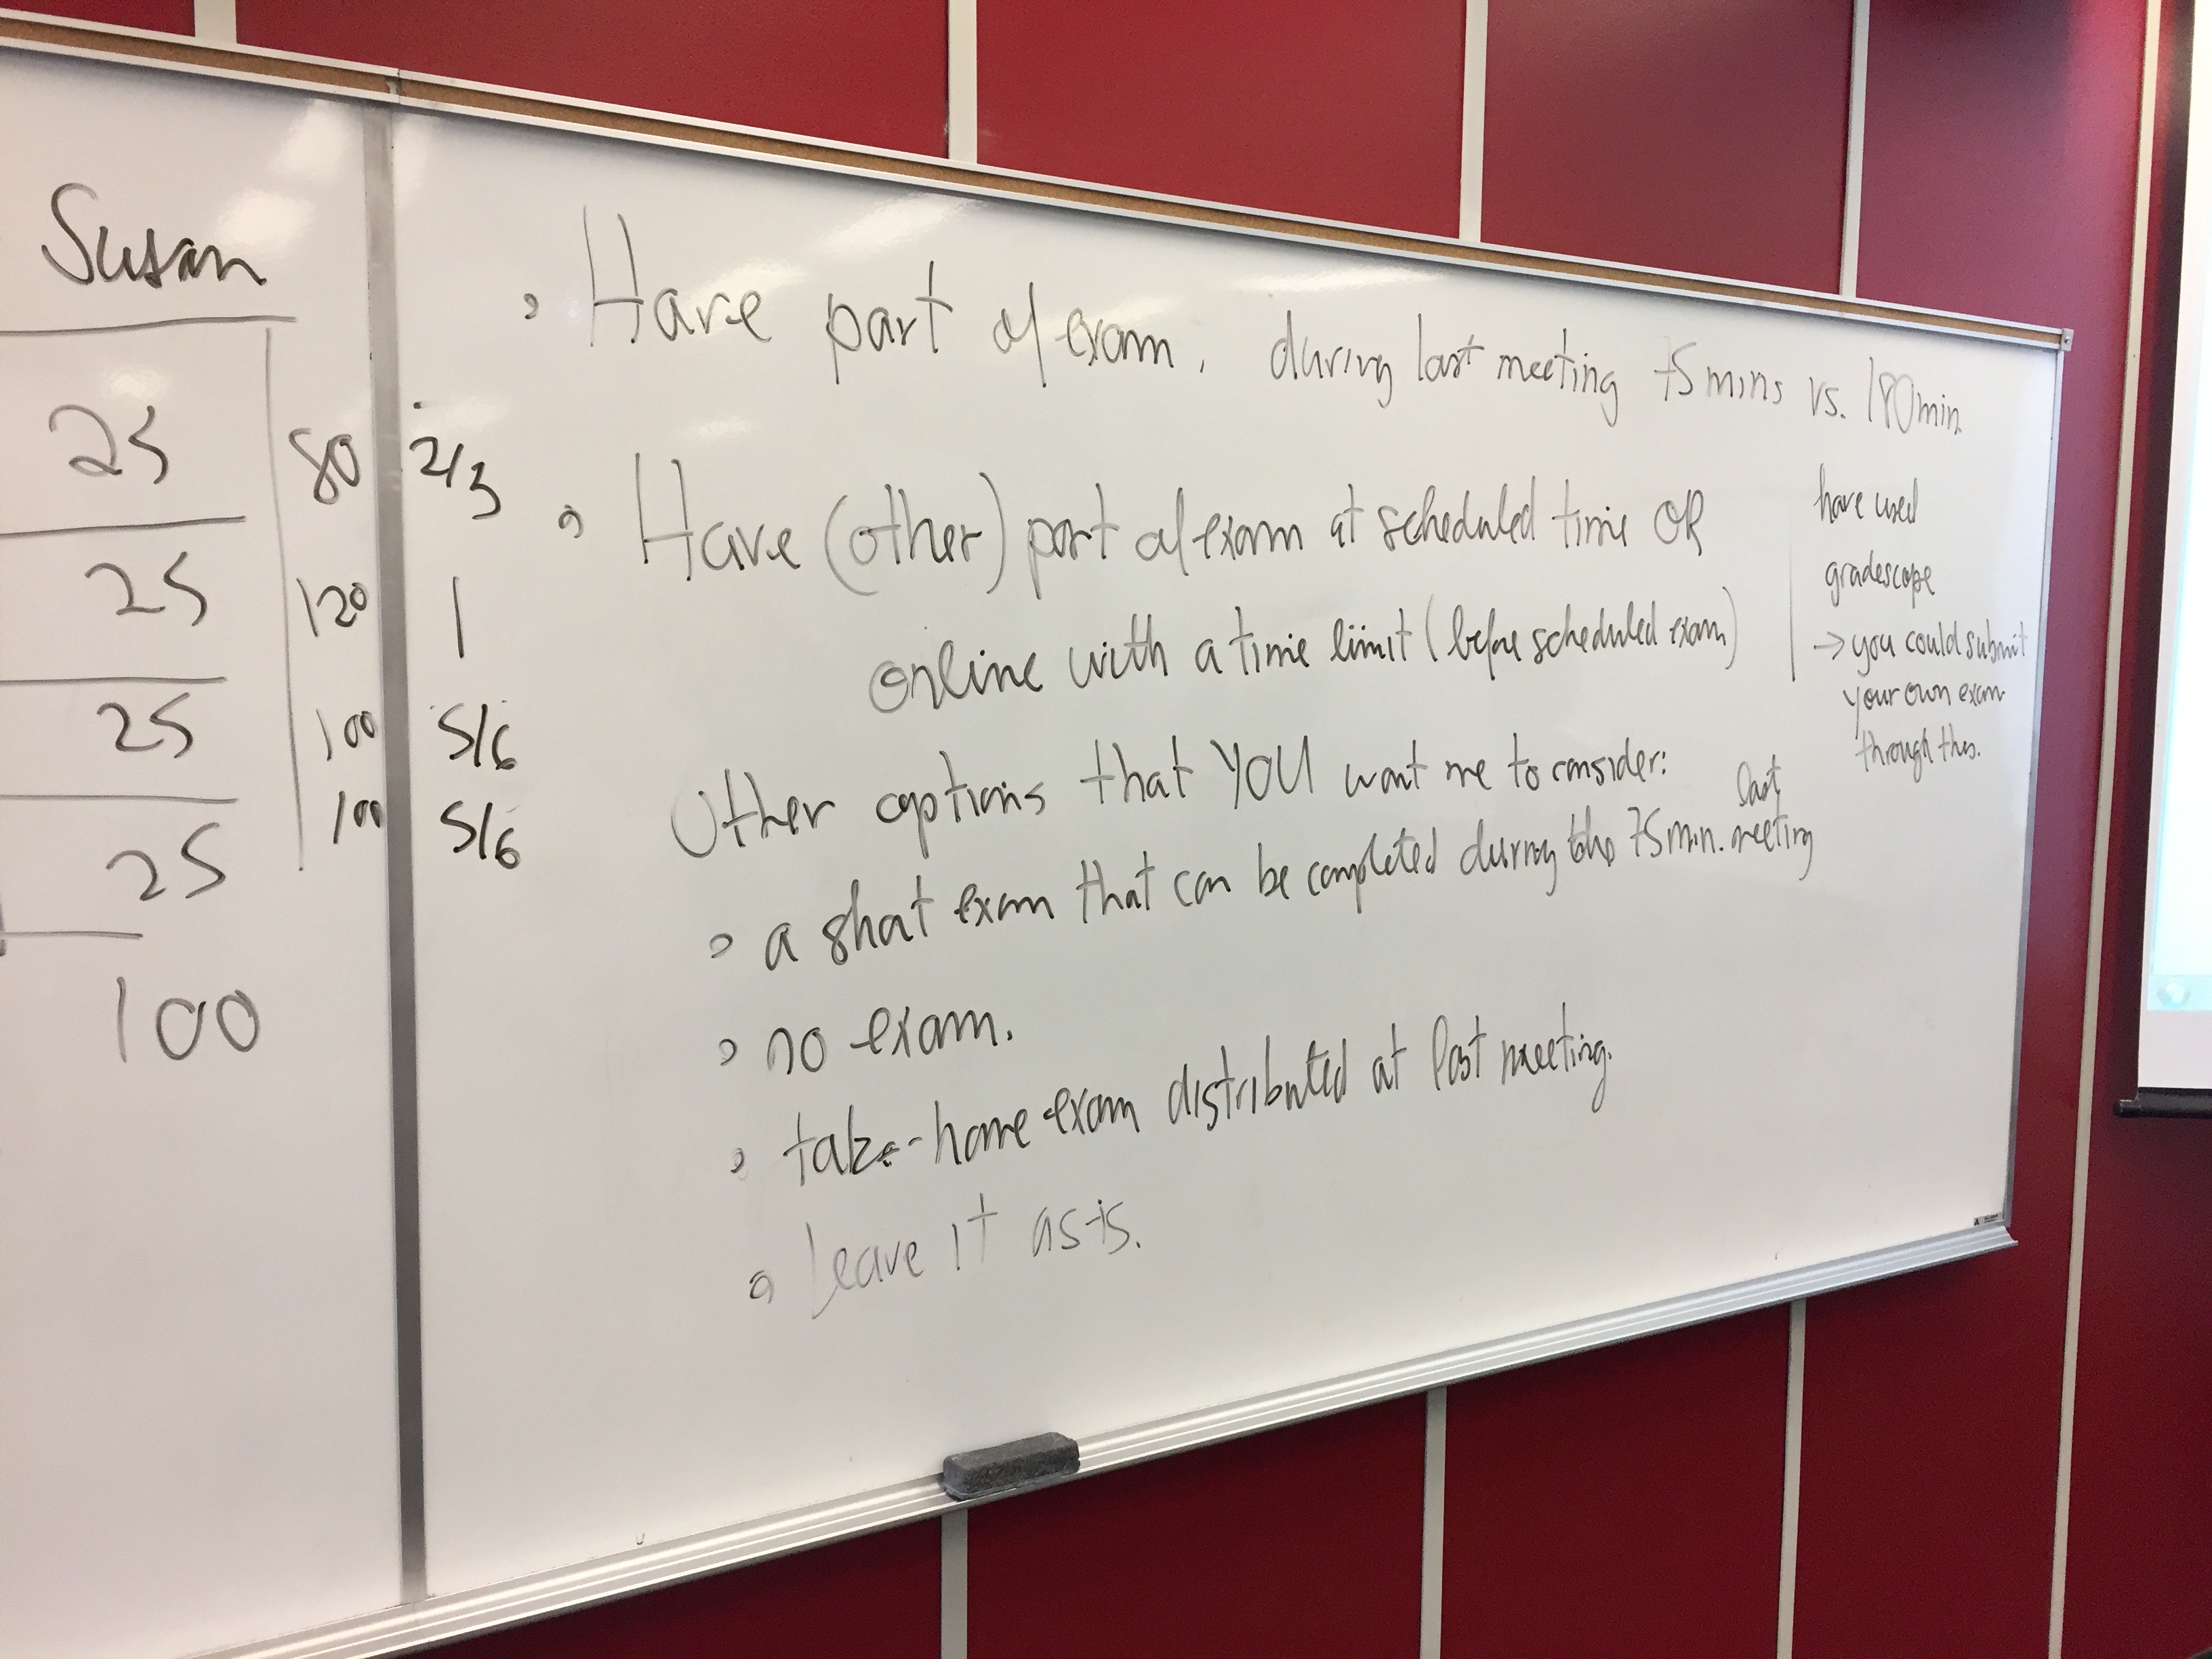 Susan
25 80 2/3
25 120 1
25 100 5/6
25 100 5/6
100
Have part of exam, during last meeting 75 mins vs. 180 min.
Have (other) part of exam at scheduled time OR
online with a time limit (before scheduled exam)
have used
gradescope
→ you could submit
your own exam
through this.
Other options that YOU want me to consider:
a short exam that can be completed during the 75 min. last meeting
no exam.
take-home exam distributed at last meeting.
Leave it as-is.